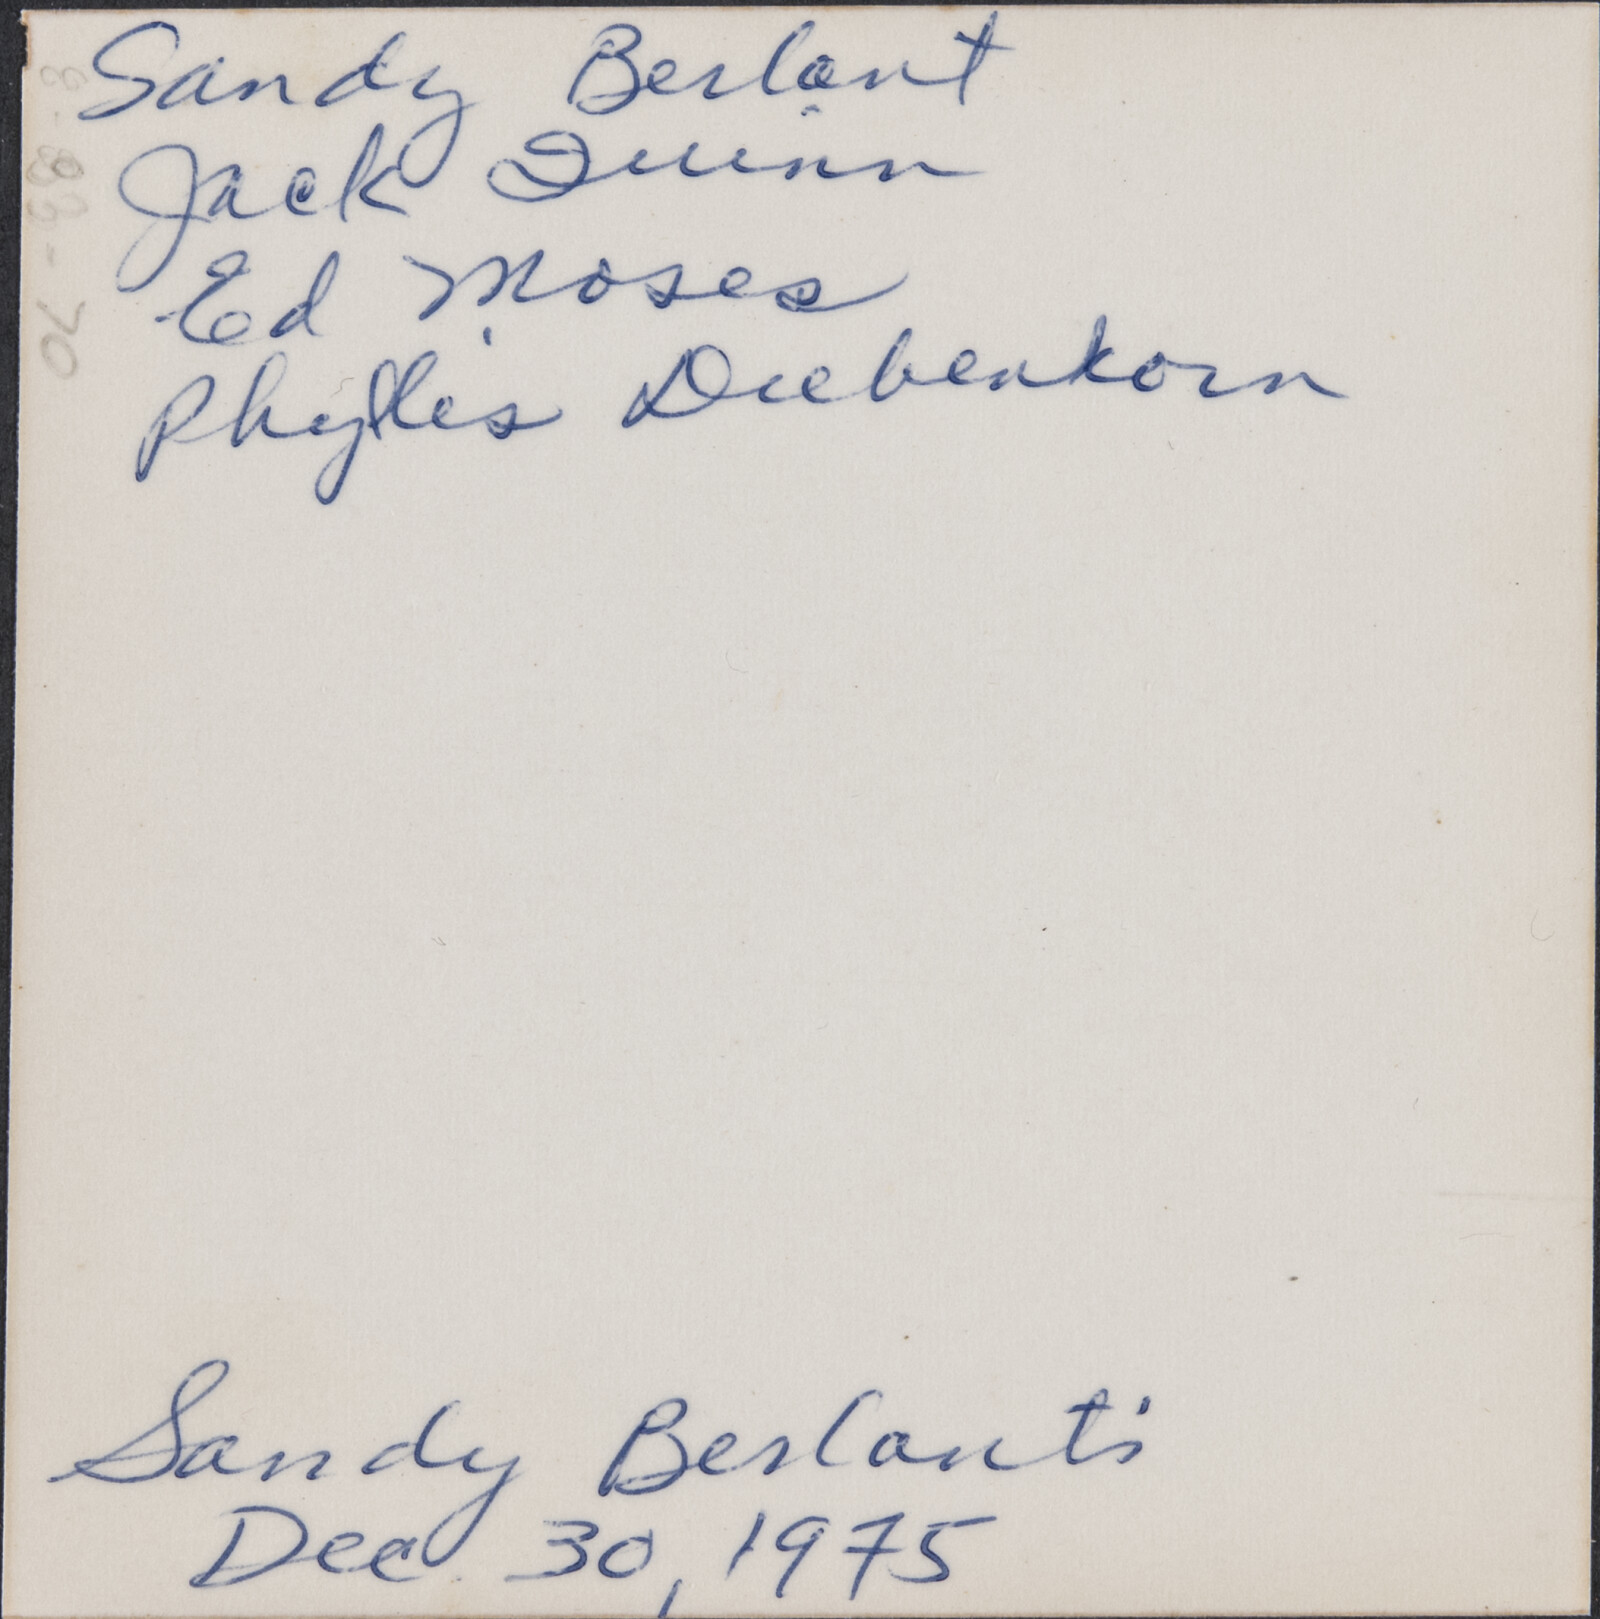 Sandy Berlant
Jack Quinn
Ed Moses
Phyllis Diebenkorn
Sandy Berlant's
Dec 30, 1975